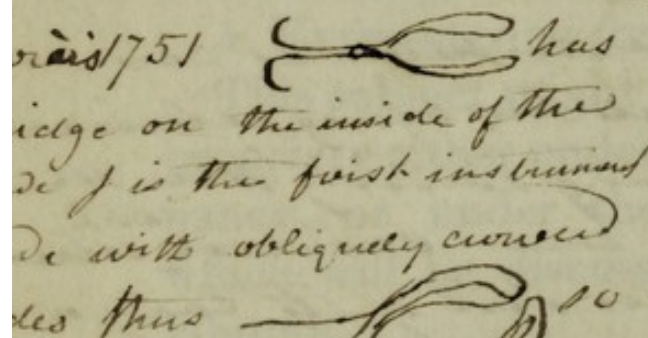 1751 has
idge on the inside of the
de f is the first instrument
de with obliquely curved
des thus so